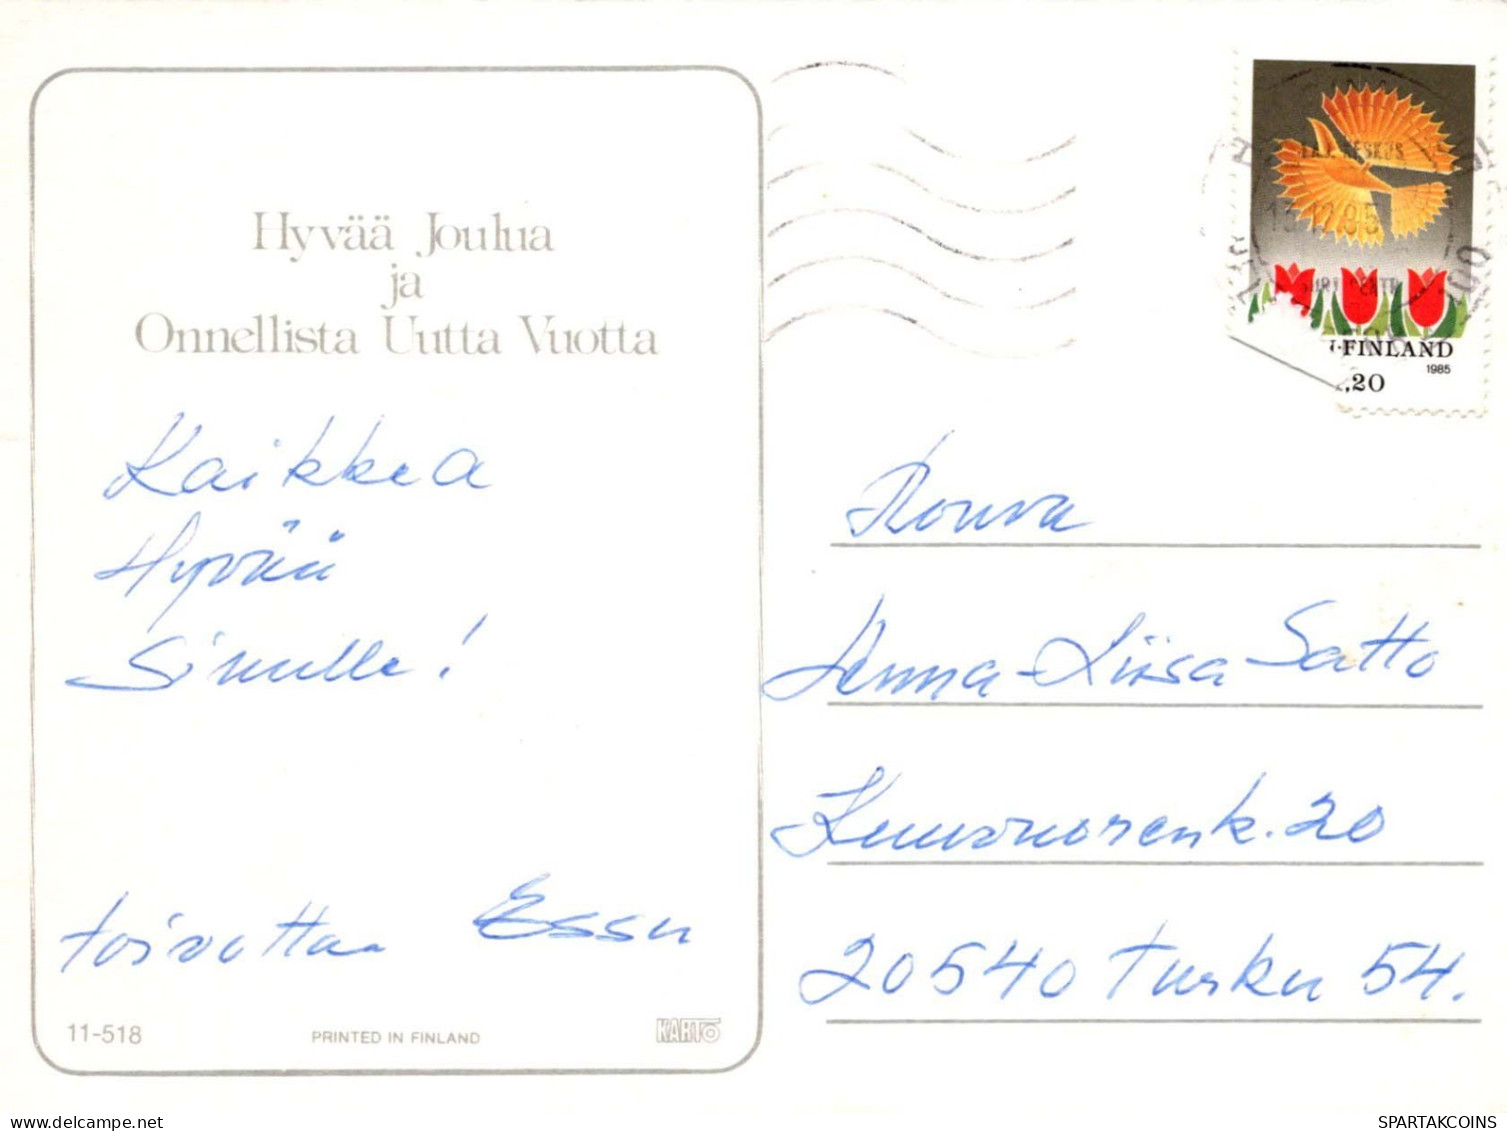 Hyvää Joulua
ja
Onnellista Uutta Vuotta
Kaikkea
Hyvää
Sinulle!
toivottaa Essu
11-518 PRINTED IN FINLAND KARTO
13.12.85
FINLAND
1985
,20
Rouva
Anna-Liisa Satto
Kuuvuorenk. 20
20540 Turku 54.
delcampe.net
SPARTAKCOINS